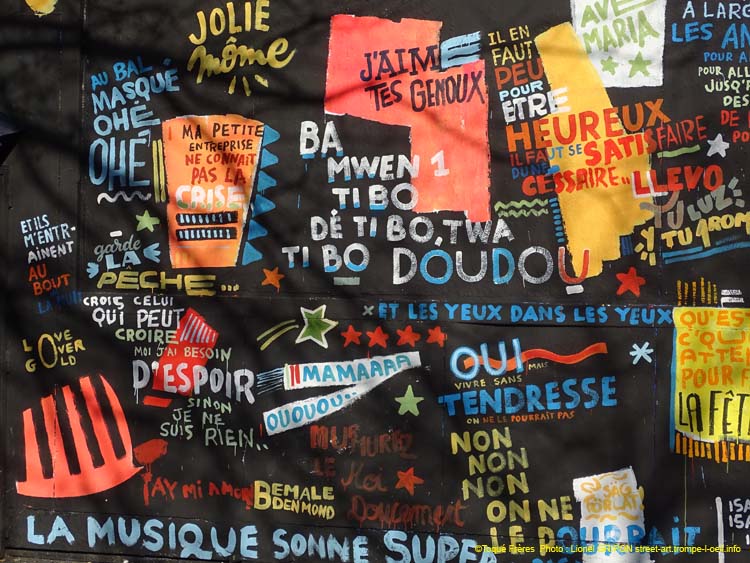 JOLIE
môme
AU BAL
MASQUÉ
OHÉ
OHÉ
MA PETITE
ENTREPRISE
NE CONNAIT
PAS LA
CRISE
ET ILS
M'ENTR-
AINENT
AU
BOUT
garde
LA
PÊCHE...
J'AIME
TES GENOUX
BA
MWEN 1
TI BO
DÉ TI BO, TWA
TI BO DOUDOU
IL EN
FAUT
PEU
POUR
ÊTRE
HEUREUX
IL FAUT SE SATISFAIRE
DU NÉ
CESSAIRE..
AVE
MARIA
À LARG
LES AN
POUR A
POUR ALLE
JUSQU'
DES
DE
PO
LLEVO
TU LUZ
Y TU AROM
LOVE
OVER
GOLD
CROIS CELUI
QUI PEUT
CROIRE
MOI J'AI BESOIN
D'ESPOIR
SINON
JE NE
SUIS RIEN..
ET LES YEUX DANS LES YEUX
MAMAAAA
OUOUOU..
OUI
MAIS
VIVRE SANS
TENDRESSE
ON NE LE POURRAIT PAS
NON
NON
NON
ON NE
LE POURRAIT
QU'EST
C'QU'
ATTE
POUR F
LA FÊT
MURMUREZ
LE Moi
Doucement
¡AY MI AMOR
BEMALE
DENMOND
ISA
ISA
IS
LA MUSIQUE SONNE SUPE
©Toqué Frères Photo : Lionel street-art.trompe-l-oeil.info